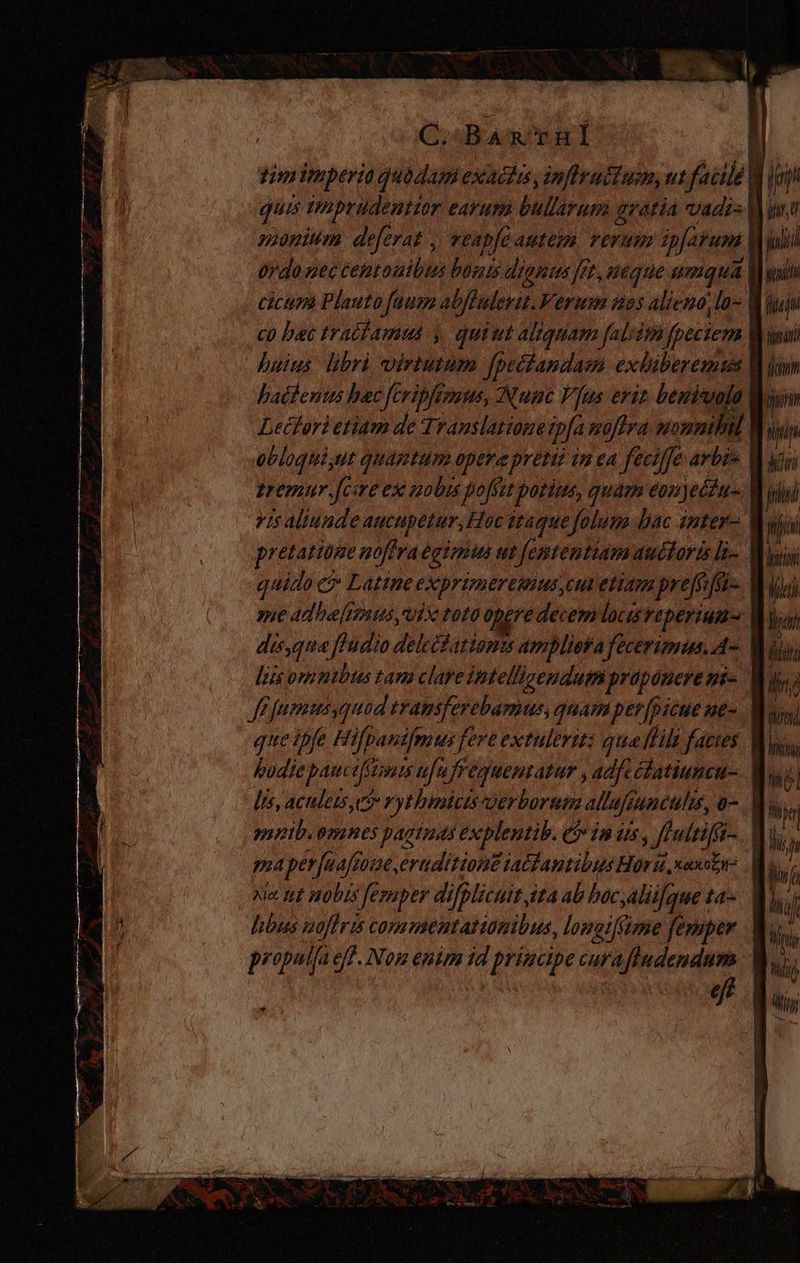 C. BARTHI
tim imperio quòdam exactis, instructum, ut facilè
quis imprudentior earum bullarum gratia vadi-
monium deserat, reapse autem rerum ipsarum
ordo nec centonibus bonis dignus sit, neque umquã
cicum Plauto suum abstulerit. Verum nos alieno, lo-
co hæc tractamus, qui ut aliquam saltim speciem
huius libri virtutum spectandam exhiberemus
hactenus hæc scripsimus, Nunc Vsus erit benivolo
Lectori etiam de Translatione ipsa nostra nonnihil
obloqui, ut quantum operæ pretii in ea fecisse arbi-
tremur, scire ex nobis possit potius, quàm conjectu-
ris aliunde aucupetur, Hoc itaque solum hac inter-
pretatione nostra egimus ut sententiam auctoris li-
quido & Latine exprimeremus, cui etiam presissi-
me adhæsimus, vix toto opere decem locis reperiun-
dis, quæ studio delectationis ampliora fecerimus. A-
liis omnibus tam clare intelligendum proponere ni-
si sumus, quod transferebamus, quam perspicue ne-
que ipse Hispanismus fere extulerit: quæ stili facies
hodie paucissimis usu frequentatur, adfectatiuncu-
lis, aculeis, & rythmicis verborum allusiunculis, o-
mnib. omnes paginas explentib. & in iis, stultissi-
ma persuasione, eruditionẽ iactantibus Horũ, κακοζη-
λία ut nobis semper displicuit, ita ab hoc, aliisque ta-
libus nostris commentationibus, longissime semper
propulsa est. Non enim id principe cura studendum
est